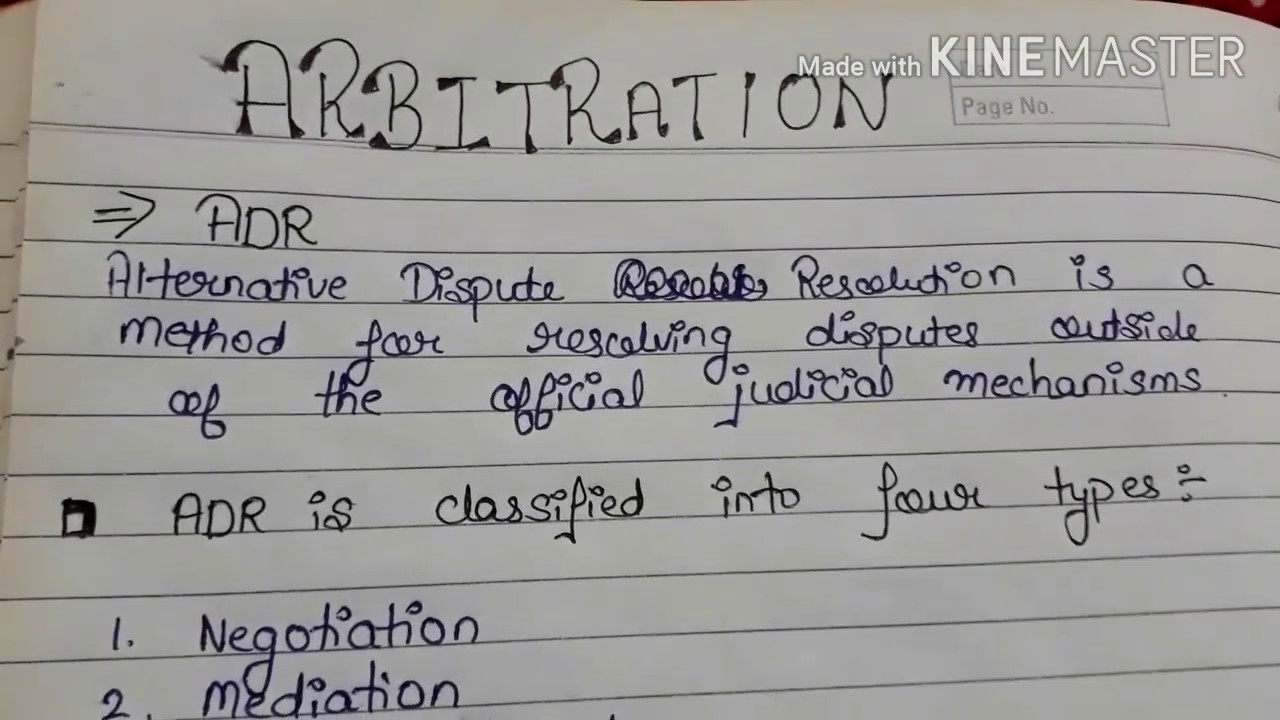 ARBITRATION
Made with KINEMASTER
Page No.
⇒ ADR
Alternative Dispute Resolution is a
method for resolving disputes outside
of the official judicial mechanisms.
ADR is classified into four types:-
1. Negotiation
2. Mediation